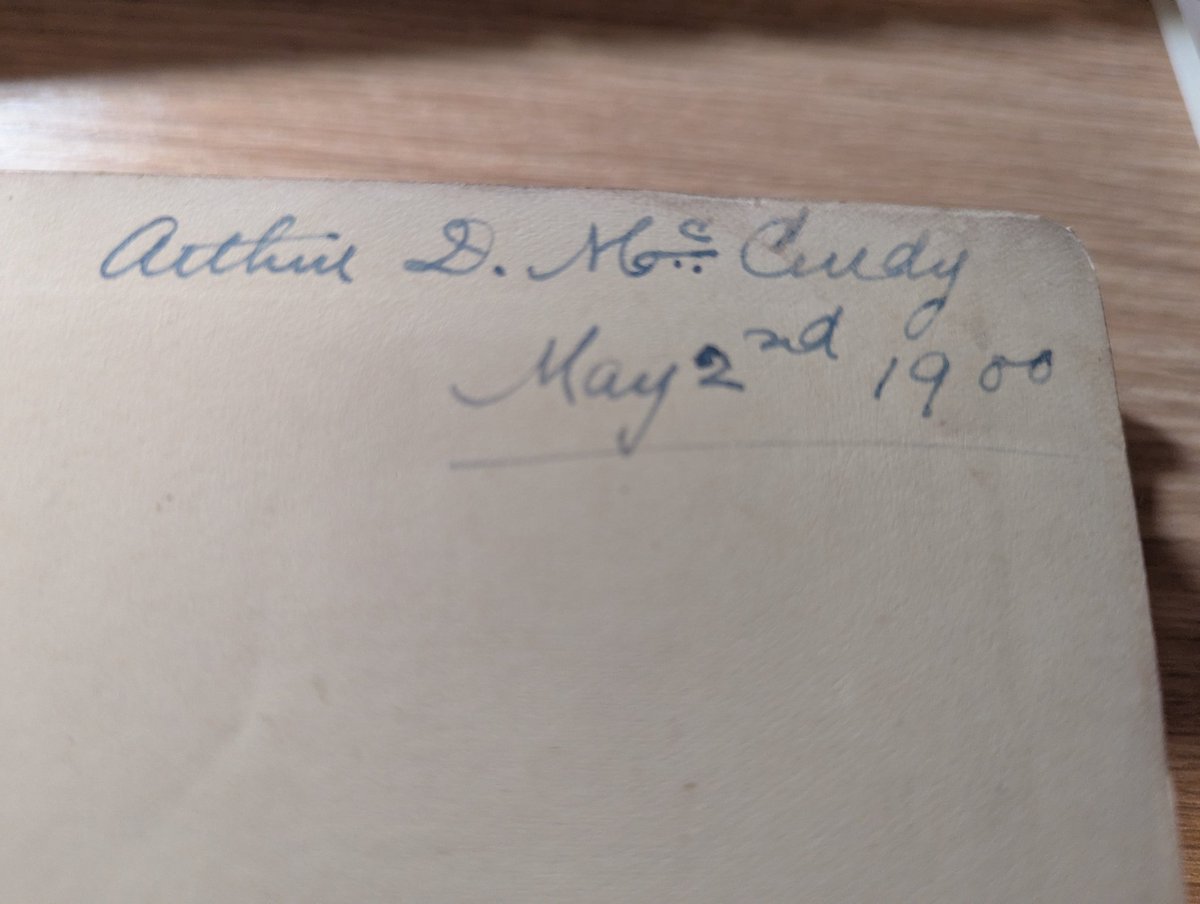 Arthur D. Mc Curdy
May 2nd 1900